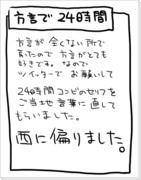 方言で24時間
方言が全くない所で
育ったので方言がとても
好きです。なので
ツイッターでお願いして
24時間コンビのセリフを
ご当地言葉に直して
もらいました。
西に偏りました。